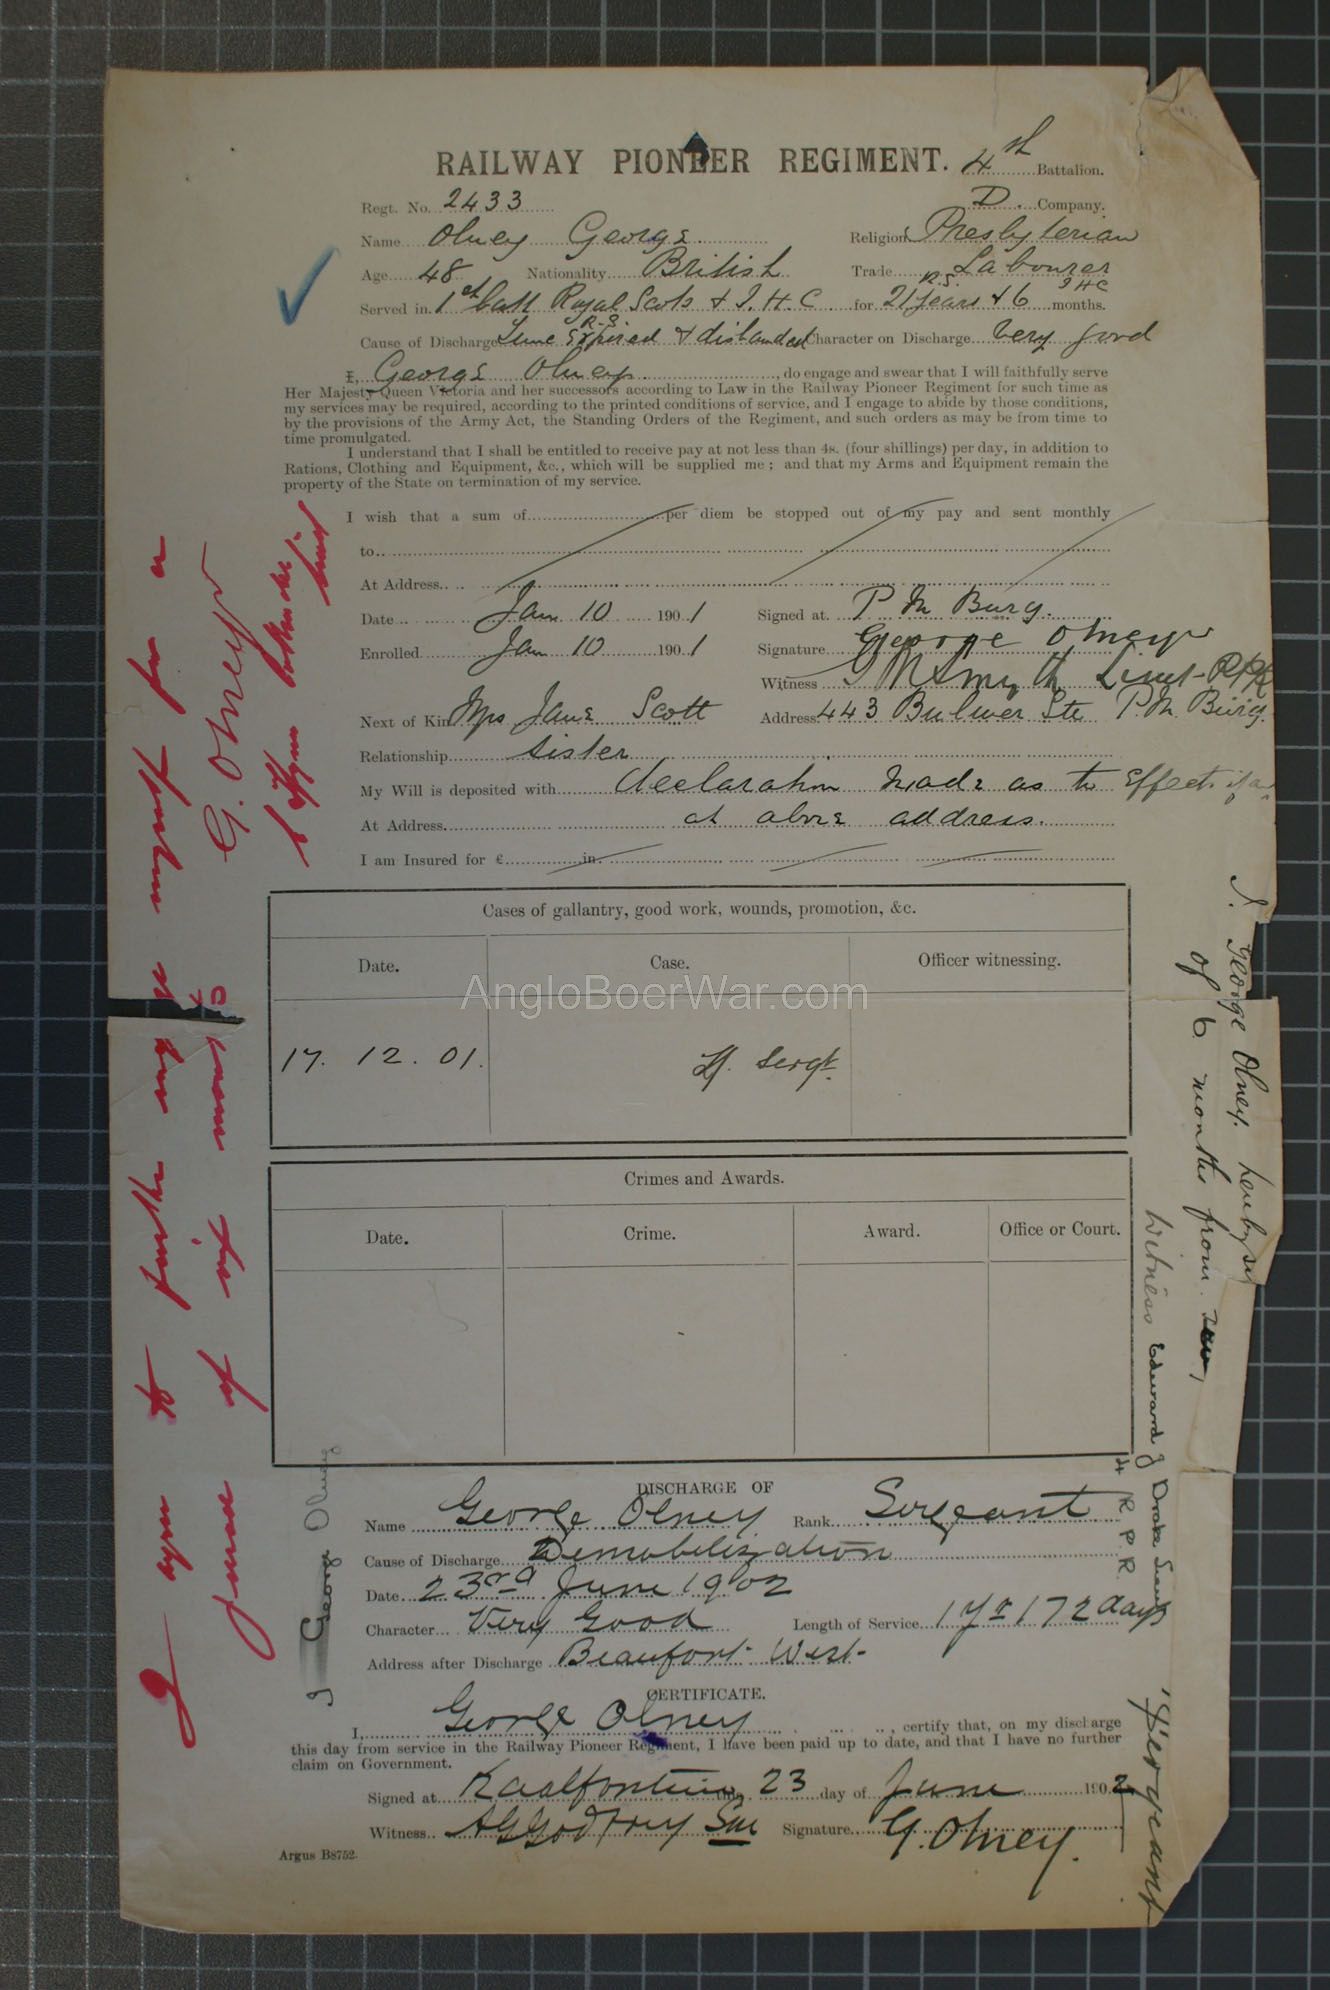 RAILWAY PIONEER REGIMENT. 4th Battalion.
Regt. No. 2433 D. Company.
Name Olney George Religion Presbyterian
Age 48 Nationality British Trade Labourer
Served in 1st Batt Royal Scots & I.H.C for 21 years R.S. & 6 IHC months.
Cause of Discharge Time Expired R.S. & disbanded Character on Discharge Very good
I, George Olney, do engage and swear that I will faithfully serve
Her Majesty Queen Victoria and her successors according to Law in the Railway Pioneer Regiment for such time as
my services may be required, according to the printed conditions of service, and I engage to abide by those conditions,
by the provisions of the Army Act, the Standing Orders of the Regiment, and such orders as may be from time to
time promulgated.
I understand that I shall be entitled to receive pay at not less than 4s. (four shillings) per day, in addition to
Rations, Clothing and Equipment, &c., which will be supplied me; and that my Arms and Equipment remain the
property of the State on termination of my service.
I wish that a sum of per diem be stopped out of my pay and sent monthly
to
At Address
Date Jan 10 1901 Signed at P M Burg.
Enrolled Jan 10 1901 Signature George Olney
Witness Smyth Lieut RPR
Next of Kin Mrs Jane Scott Address 443 Bulwer Ste P.M. Burg.
Relationship sister
My Will is deposited with declaration made as to Effects
At Address at above address.
I am Insured for £ in
Cases of gallantry, good work, wounds, promotion, &c.
Date. Case. Officer witnessing.
AngloBoerWar.com
17. 12. 01. Sergt.
Crimes and Awards.
Date. Crime. Award. Office or Court.
DISCHARGE OF
Name George Olney Rank Sergeant
Cause of Discharge Demobilization
Date 23rd June 1902
Character Very Good Length of Service 1 yr 172 days
Address after Discharge Beaufort West
CERTIFICATE.
I, George Olney, certify that, on my discharge
this day from service in the Railway Pioneer Regiment, I have been paid up to date, and that I have no further
claim on Government.
Signed at Kaalfontein this 23 day of June 1902
Witness Godfrey Signature G. Olney.
Argus B8752.
I agree to further engage myself for a
period of six months
G. Olney
I George Olney
I. George Olney. hereby
of 6 months from
Witness Edward J Drake
4 R P R.
Sergeant